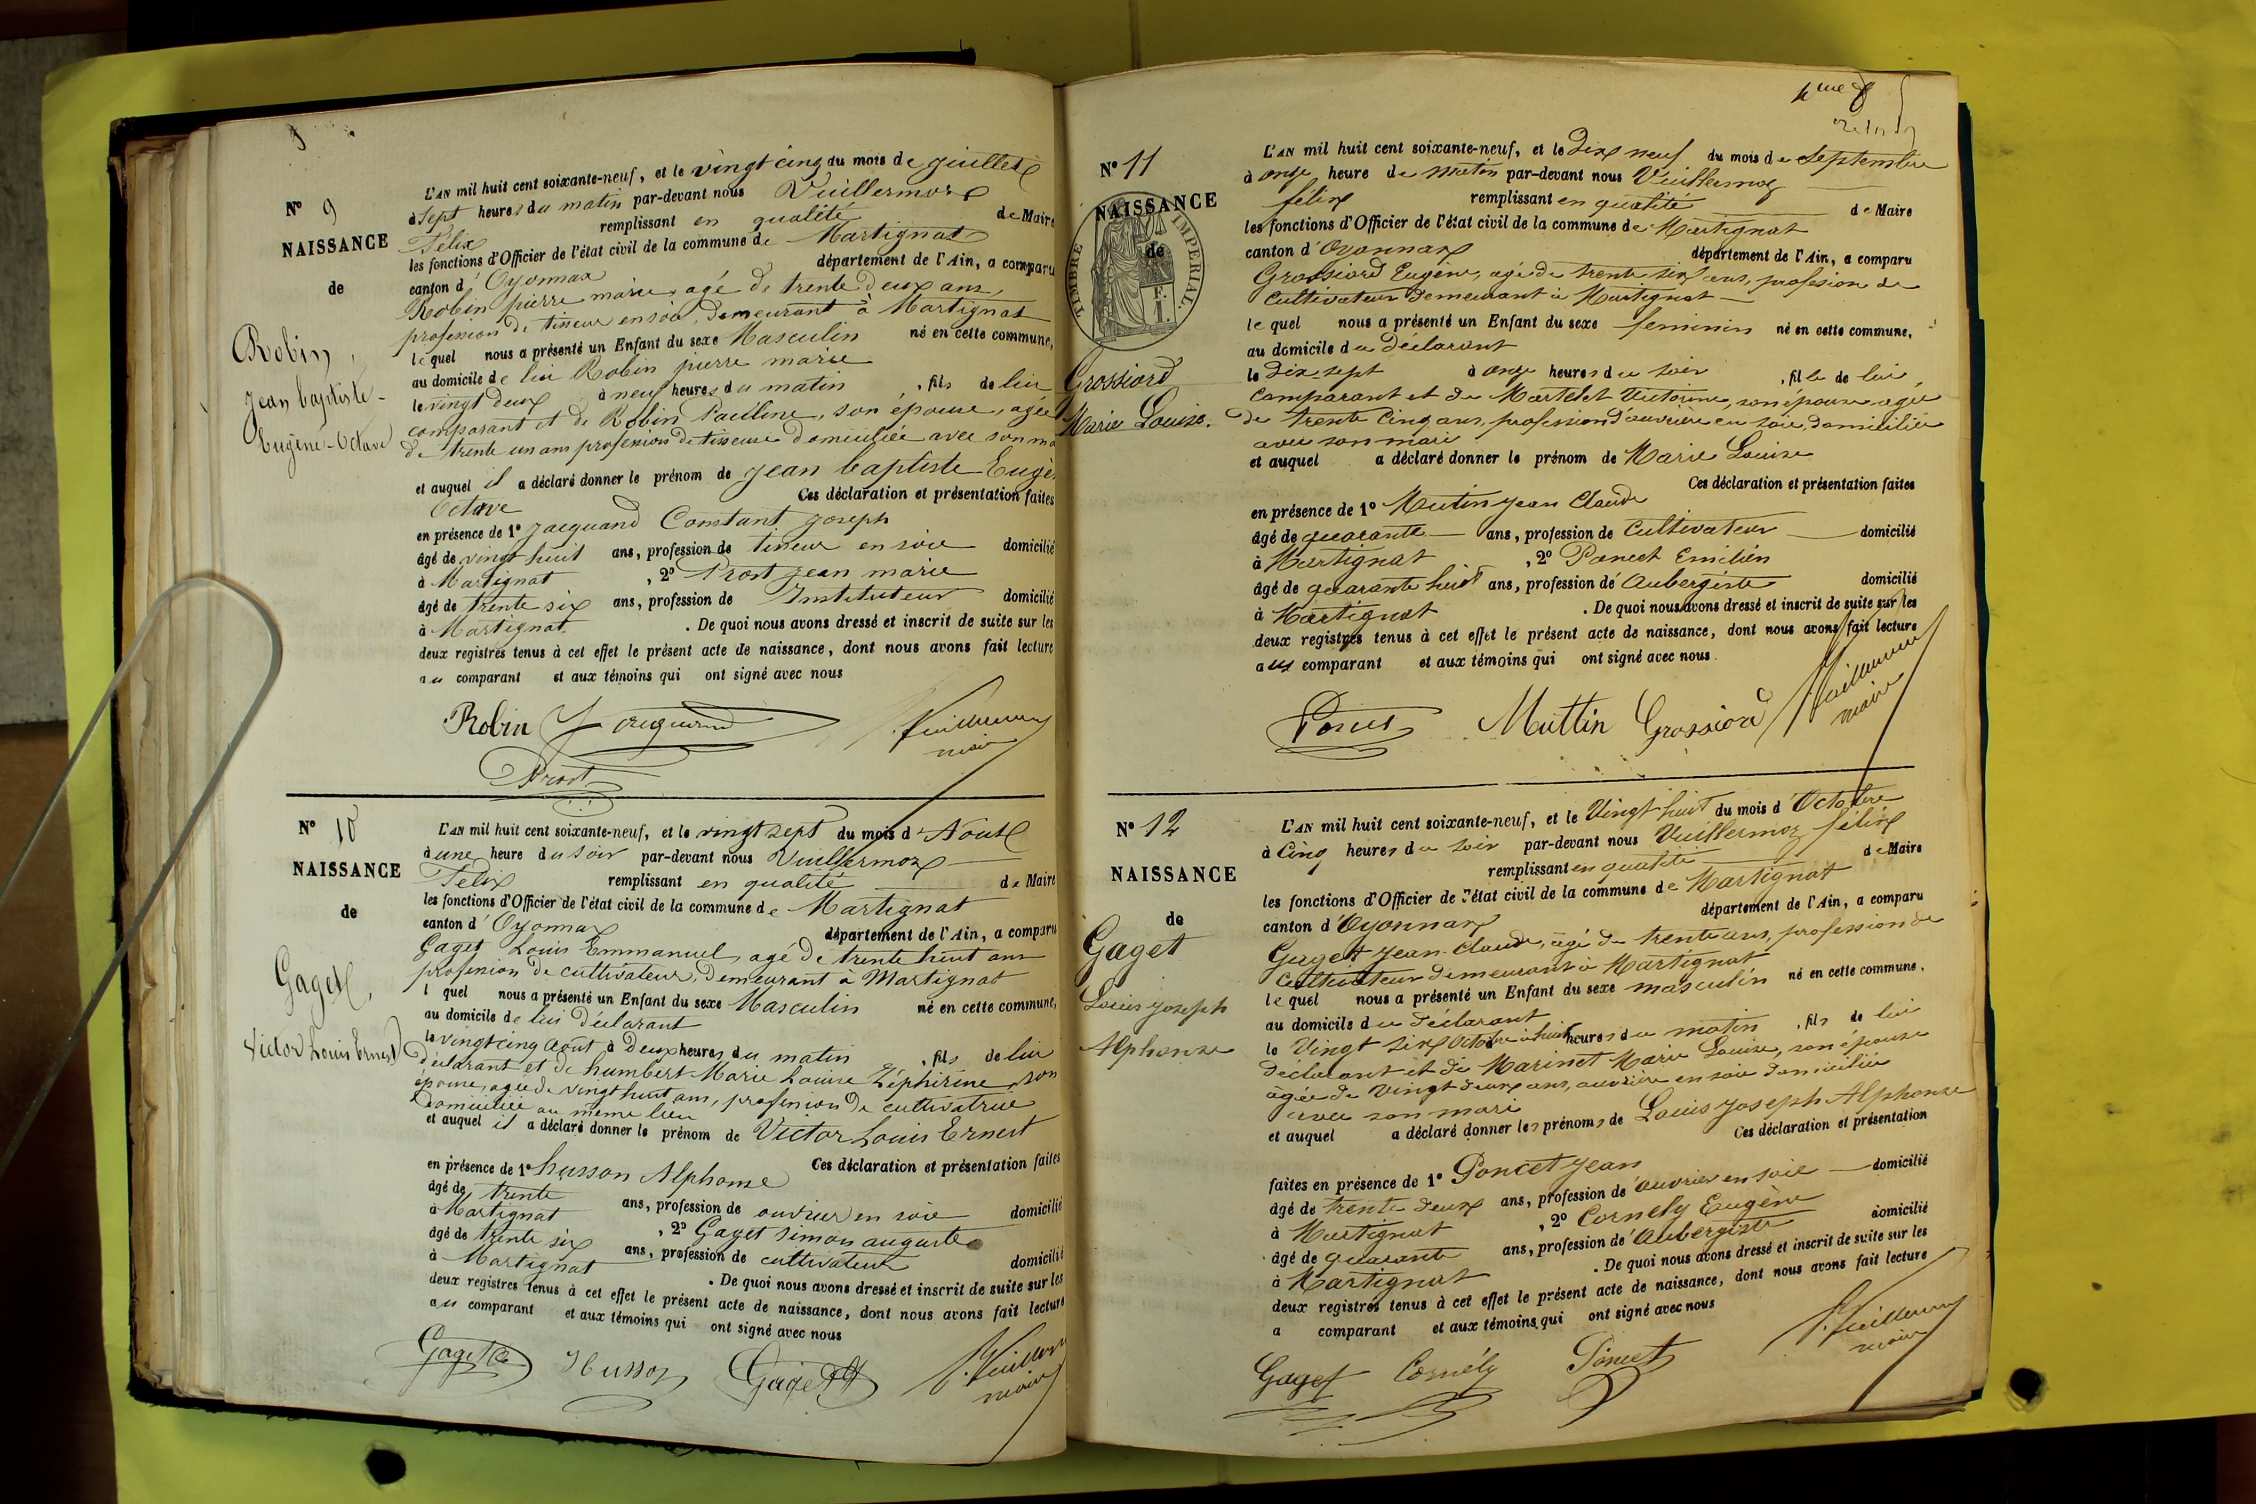 N° 9
NAISSANCE
de
Robin,
Jean baptiste-
Eugène-Octave
L'AN mil huit cent soixante-neuf, et le vingt cinq du mois de juillet
à sept heures du matin par-devant nous Vuillermoz
Félix remplissant en qualité de Maire
les fonctions d'Officier de l'état civil de la commune de Martignat
canton d'Oyonnax département de l'Ain, a comparu
Robin pierre marie, agé de trente deux ans,
profession de tisseur en soie, demeurant à Martignat
lequel nous a présenté un Enfant du sexe Masculin né en cette commune,
au domicile de lui Robin pierre marie
le vingt deux à neuf heures du matin, fils de lui
comparant et de Robin Pauline, son épouse, agée
de trente un ans profession de tisseuse domiciliée avec son ma
et auquel il a déclaré donner le prénom de Jean baptiste Eugè
Octave Ces déclaration et présentation faites
en présence de 1° Jacquand Constant Joseph
âgé de vingt huit ans, profession de tisseur en soie domicilié
à Martignat, 2° Prost Jean marie
âgé de trente six ans, profession de Instituteur domicilié
à Martignat. De quoi nous avons dressé et inscrit de suite sur les
deux registres tenus à cet effet le présent acte de naissance, dont nous avons fait lecture
au comparant et aux témoins qui ont signé avec nous
Robin Jacquand F. Vuillermoz
maire
Prost
N° 10
NAISSANCE
de
Gaget,
Victor Louis Ernest
L'AN mil huit cent soixante-neuf, et le vingt sept du mois d'Août
à une heure du soir par-devant nous Vuillermoz
Félix remplissant en qualité de Maire
les fonctions d'Officier de l'état civil de la commune de Martignat
canton d'Oyonnax département de l'Ain, a comparu
Gaget Louis Emmanuel, agé de trente huit ans
profession de cultivateur, demeurant à Martignat
l quel nous a présenté un Enfant du sexe Masculin né en cette commune,
au domicile de lui déclarant
le vingt cinq Août à deux heures du matin, fils de lui
déclarant et de humbert Marie Louise Zéphirine, son
épouse, agée de vingt huit ans, profession de cultivatrice
domiciliée au même lieu
et auquel il a déclaré donner le prénom de Victor Louis Ernest
Ces déclaration et présentation faites
en présence de 1° husson Alphonse
âgé de trente ans, profession de ouvrier en soie domicilié
à Martignat, 2° Gaget Simon auguste
âgé de trente six ans, profession de cultivateur domicilié
à Martignat. De quoi nous avons dressé et inscrit de suite sur les
deux registres tenus à cet effet le présent acte de naissance, dont nous avons fait lecture
au comparant et aux témoins qui ont signé avec nous
Gaget Husson Gaget F. Vuillermoz
maire
N° 11
NAISSANCE
de
TIMBRE IMPÉRIAL.
Grossiord
Marie Louise.
L'AN mil huit cent soixante-neuf, et le Dix neuf du mois de Septembre
à onze heure de matin par-devant nous Vuillermoz
félix remplissant en qualité de Maire
les fonctions d'Officier de l'état civil de la commune de Martignat
canton d'Oyonnax département de l'Ain, a comparu
Grossiord Eugène, agé de trente six ans, profesion de
Cultivateur demeurant à Martignat
lequel nous a présenté un Enfant du sexe feminin né en cette commune,
au domicile du déclarant
le Dix sept à onze heures du soir, fille de lui,
comparant et de Martelet Victorine, son épouse agée
de trente Cinq ans, profession d'ouvrière en soie, domiciliée
avec son mari
et auquel a déclaré donner le prénom de Marie Louise
Ces déclaration et présentation faites
en présence de 1° Mutin Jean Claude
âgé de quarante ans, profession de Cultivateur domicilié
à Martignat, 2° Poncet Emilien
âgé de quarante huit ans, profession de Aubergiste domicilié
à Martignat. De quoi nous avons dressé et inscrit de suite sur les
deux registres tenus à cet effet le présent acte de naissance, dont nous avons fait lecture
aux comparant et aux témoins qui ont signé avec nous.
Poncet Muttin Grossiord F. Vuillermoz
maire
N° 12
NAISSANCE
de
Gaget
Louis joseph
Alphonse
L'AN mil huit cent soixante-neuf, et le Vingt huit du mois d'Octobre
à Cinq heures du soir par-devant nous Vuillermoz félix
remplissant en qualité de Maire
les fonctions d'Officier de l'état civil de la commune de Martignat
canton d'Oyonnax département de l'Ain, a comparu
Gaget Jean Claude, agé de trente ans, profession de
Cultivateur demeurant à Martignat
lequel nous a présenté un Enfant du sexe masculin né en cette commune,
au domicile du déclarant
le Vingt six Octobre à huit heures du matin, fils de lui
déclarant et de Marinet Marie Louise, son épouse
agée de Vingt deux ans, ouvrière en soie domiciliée
avec son mari
et auquel a déclaré donner les prénoms de Louis joseph Alphonse
Ces déclaration et présentation
faites en présence de 1° Poncet Jean
âgé de trente deux ans, profession de ouvrier en soie domicilié
à Martignat, 2° Cornely Eugène
âgé de quarante ans, profession de Aubergiste domicilié
à Martignat. De quoi nous avons dressé et inscrit de suite sur les
deux registres tenus à cet effet le présent acte de naissance, dont nous avons fait lecture
a comparant et aux témoins qui ont signé avec nous
Gaget Cornély Poncet F. Vuillermoz
maire